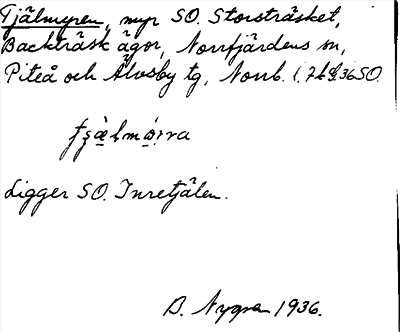 Tjälmyren, myr SO. Storsträsket,
Backträsk ägor, Norrfjärdens sn,
Piteå och Älvsby tg, Norrb. l.
Ligger SO. Inretjälen.
B. Nygren 1936.